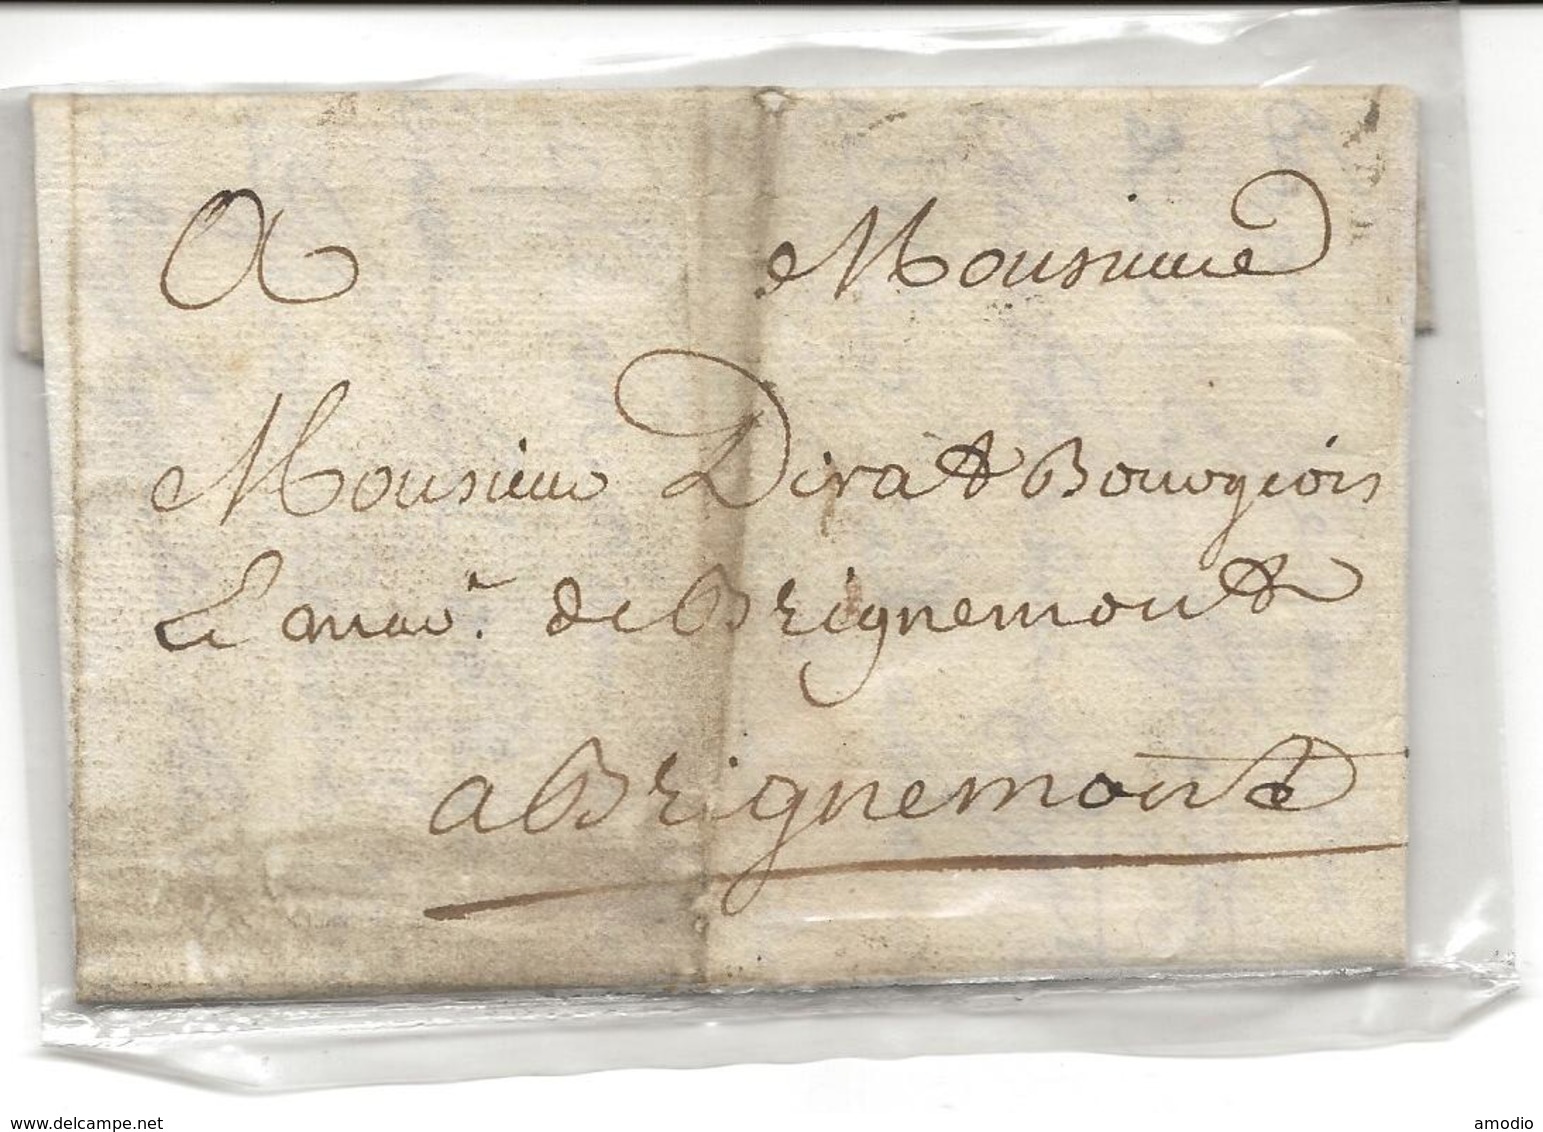 A Monsieur
Monsieur Dirat Bourgeois
de Brignemont
a Brignemont
www.delcampe.net
amodio